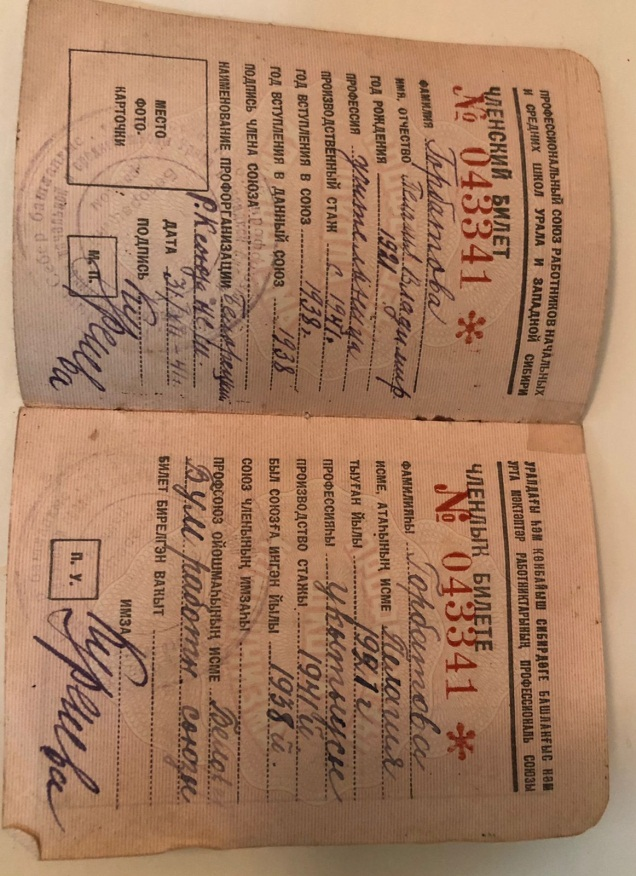 ПРОФЕССИОНАЛЬНЫЙ СОЮЗ РАБОТНИКОВ НАЧАЛЬНЫХ
И СРЕДНИХ ШКОЛ УРАЛА И ЗАПАДНОЙ СИБИРИ
ЧЛЕНСКИЙ БИЛЕТ
№ 043341 *
ФАМИЛИЯ Горбатова
ИМЯ, ОТЧЕСТВО Пелагия Владимир
ГОД РОЖДЕНИЯ 1921
ПРОФЕССИЯ учительница
ПРОИЗВОДСТВЕННЫЙ СТАЖ с 1941г.
ГОД ВСТУПЛЕНИЯ В СОЮЗ 1938г.
ГОД ВСТУПЛЕНИЯ В ДАННЫЙ СОЮЗ 1938
ПОДПИСЬ ЧЛЕНА СОЮЗА
НАИМЕНОВАНИЕ ПРОФОРГАНИЗАЦИИ
МЕСТО
ФОТО-
КАРТОЧКИ
ДАТА
ПОДПИСЬ
М. П.
УРАЛДАҒЫ ҺӘМ КӨНБАЙЫШ СИБИРДӘГЕ БАШЛАНҒЫС ҺӘМ
УРТА МӘКТӘПТӘР РАБОТНИКТАРЫНЫҢ ПРОФЕССИОНАЛЬ СОЮЗЫ
ЧЛЕНДЫҠ БИЛЕТЕ
№ 043341 *
ФАМИЛИЯҺЫ Горбатова
ИСМЕ, АТАҺЫНЫҢ ИСМЕ Пелагия
ТЫУҒАН ЙЫЛЫ 1921 й
ПРОФЕССИЯҺЫ укытыусы
ПРОИЗВОДСТВО СТАЖЫ 1941 й
БЫЛ СОЮЗҒА ИНГӘН ЙЫЛЫ 1938 й.
СОЮЗ ЧЛЕНЫНЫҢ ИМЗАҺЫ
ПРОФСОЮЗ ОЙОШМАҺЫНЫҢ ИСМЕ
работн. союзы
БИЛЕТ БИРЕЛГӘН ВАҠЫТ
ИМЗА
П. У.